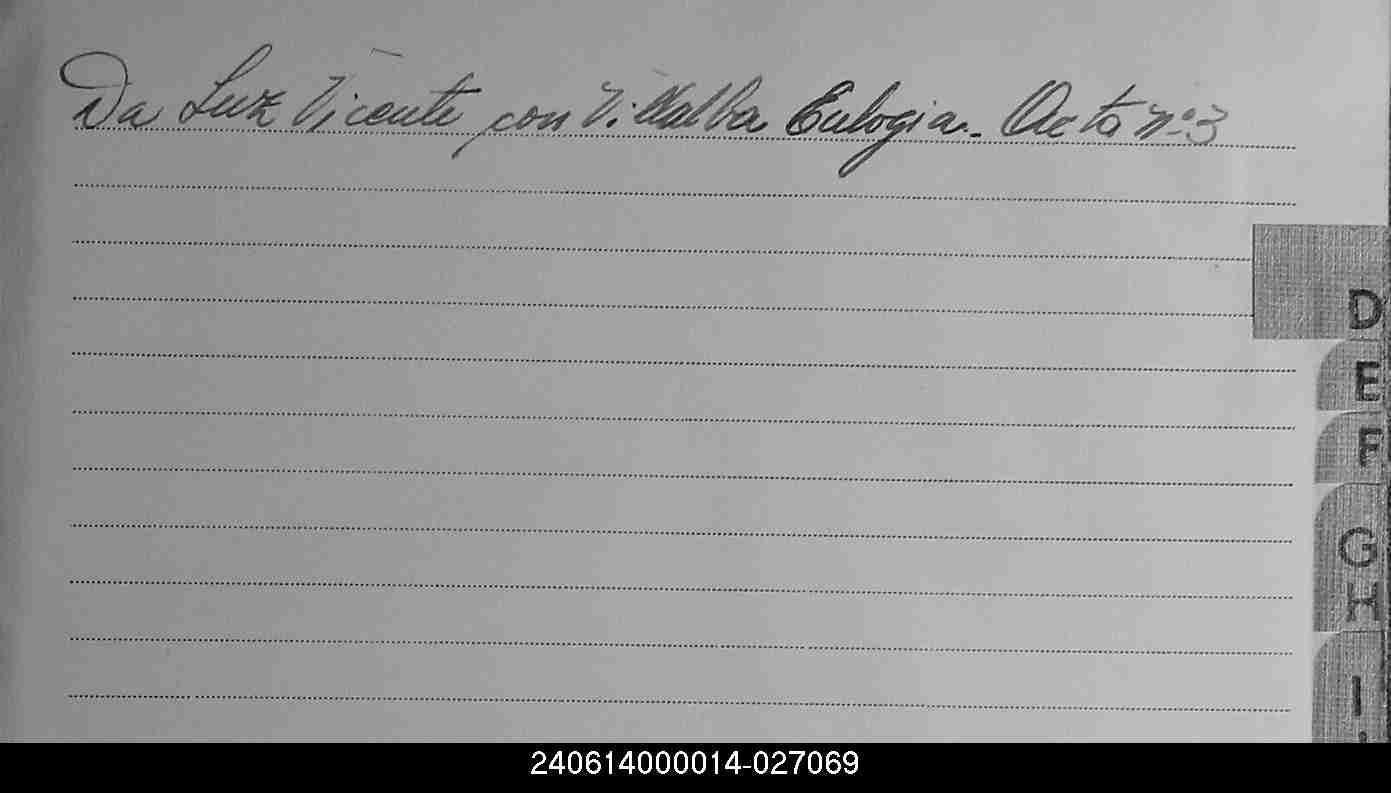 Da Luz Vicente con Villalba Eulogia. Acta nº 3
D
E
F
G
H
I
240614000014-027069